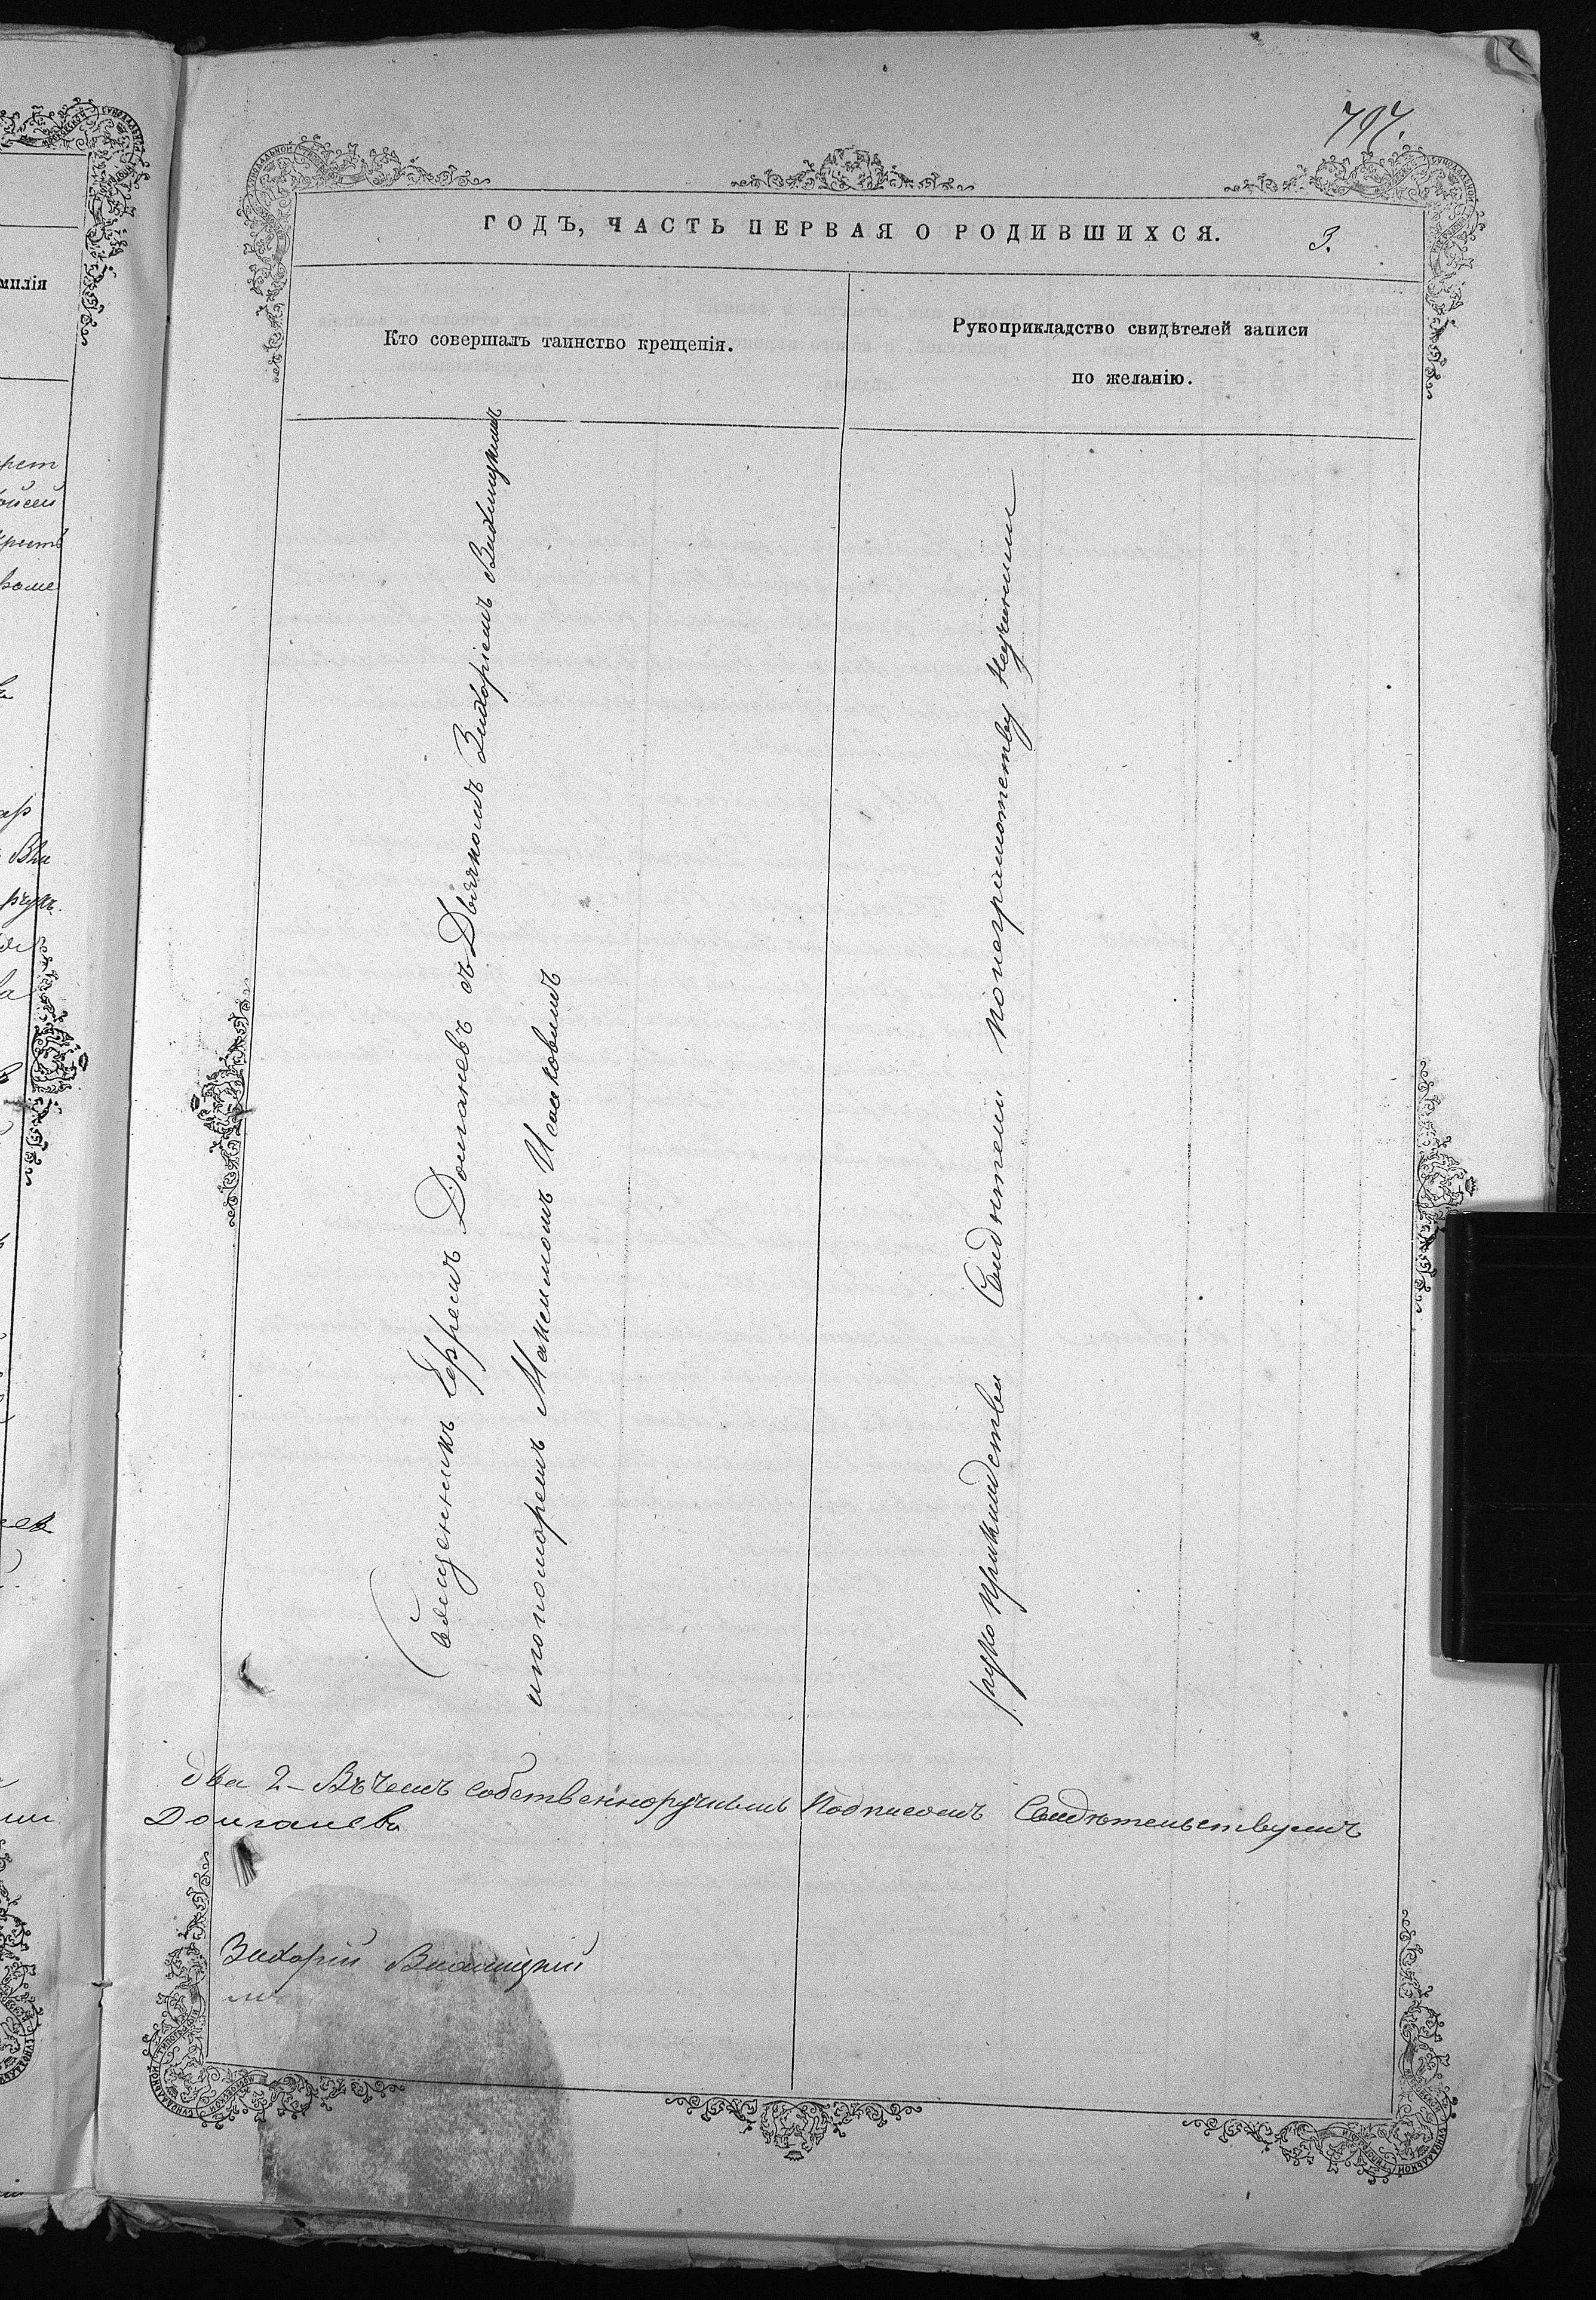 797.
ГОДЪ, ЧАСТЬ ПЕРВАЯ О РОДИВШИХСЯ.
3.
Кто совершалъ таинство крещенія.
Рукоприкладство свидѣтелей записи
по желанію.
Священникъ Ефремъ Долганевъ съ Дьячкомъ Захаріемъ
ипономоремъ Максимомъ Исаковымъ
рукоприкладства Свидѣтели понеграмотству неучинили
два 2 – Въчемъ собственноручнымъ Подписомъ Свидѣтельствуемъ
Долганевъ
Захарій
милія